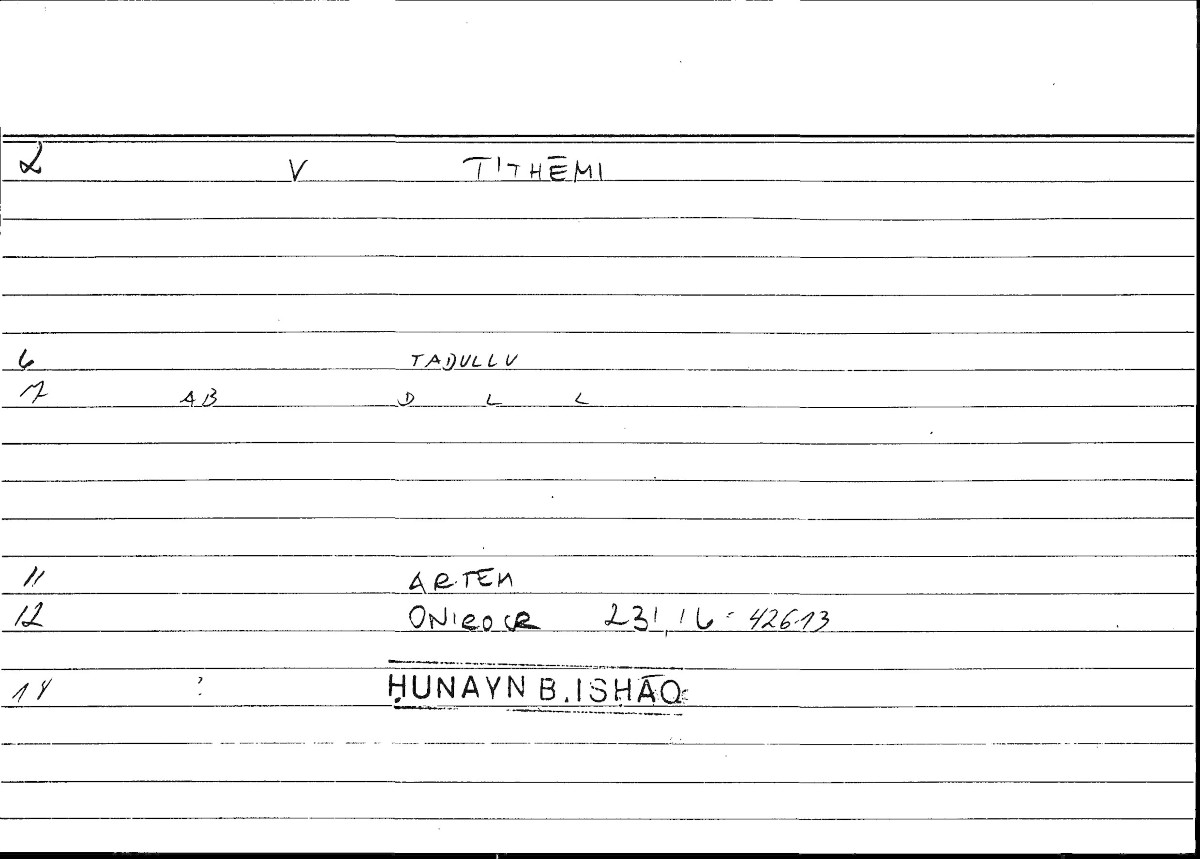 2 V TITHĒMI
6 TADULLU
7 AB D L L
11 ARTEM
12 ONIROCR 231,16 = 426.13
14 ? ḤUNAYN B. ISḤĀQ